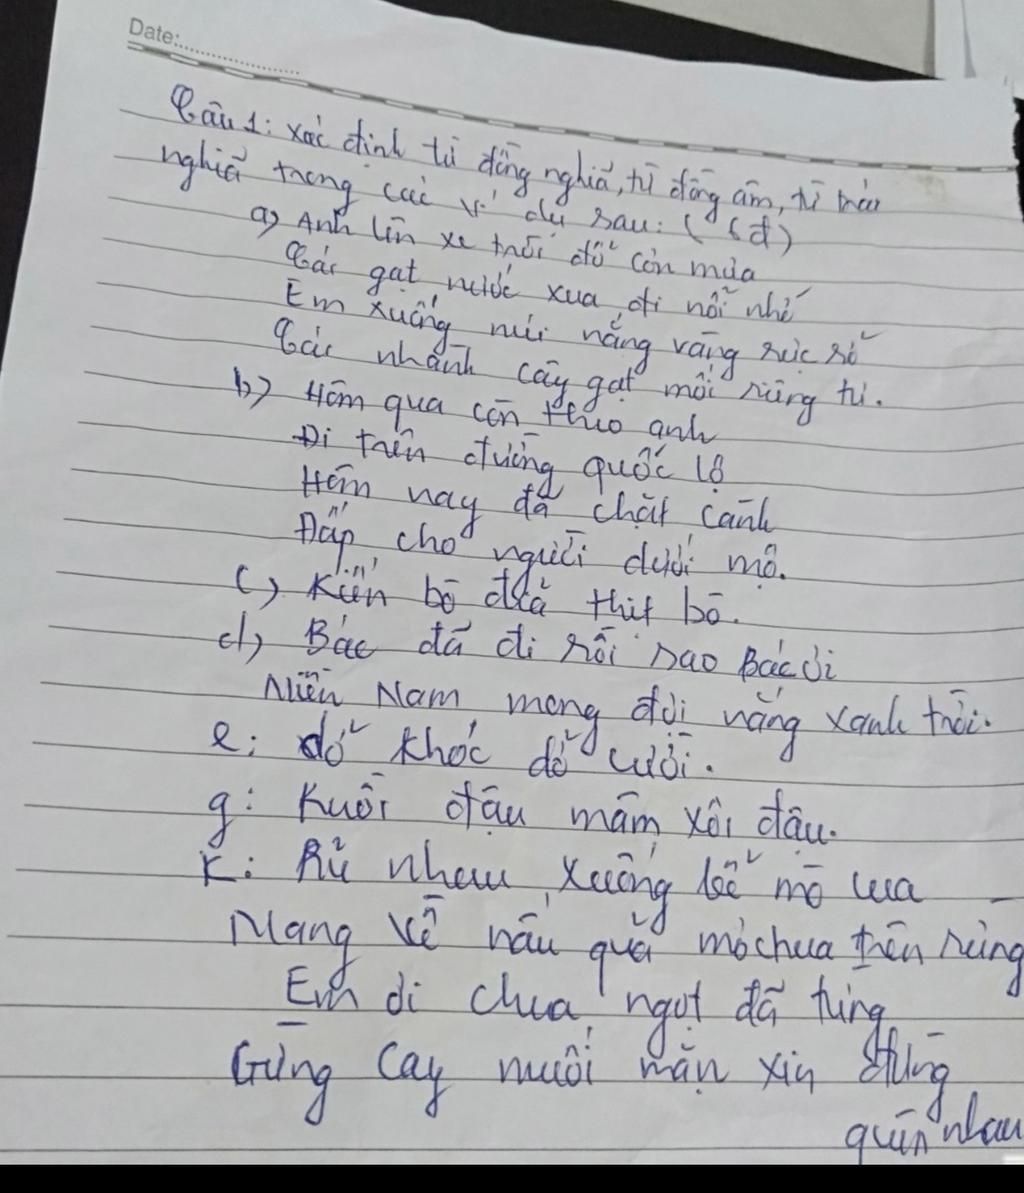 Date:
Câu 1: xác định từ đồng nghĩa, từ đồng âm, từ trái
nghĩa trong các ví dụ sau: (6đ)
a, Anh lên xe trời đổ cơn mưa
Cái gạt nước xua đi nỗi nhớ
Em xuống núi nắng vàng rực rỡ
Cái nhành cây gạt mối riêng tư.
b, Hôm qua còn theo anh
Đi trên đường quốc lộ
Hôm nay đã chặt cành
Đắp cho người dưới mộ.
c, Kiến bò đĩa thịt bò.
d, Bác đã đi rồi sao Bác ơi
Miền Nam mong đợi nắng xanh trời.
e: dở khóc dở cười.
g: Ruồi đậu mâm xôi đậu.
k: Rủ nhau xuống bể mò cua
Mang về nấu quả mơ chua trên rừng
Em ơi chua ngọt đã từng
Gừng cay muối mặn xin đừng
quên nhau